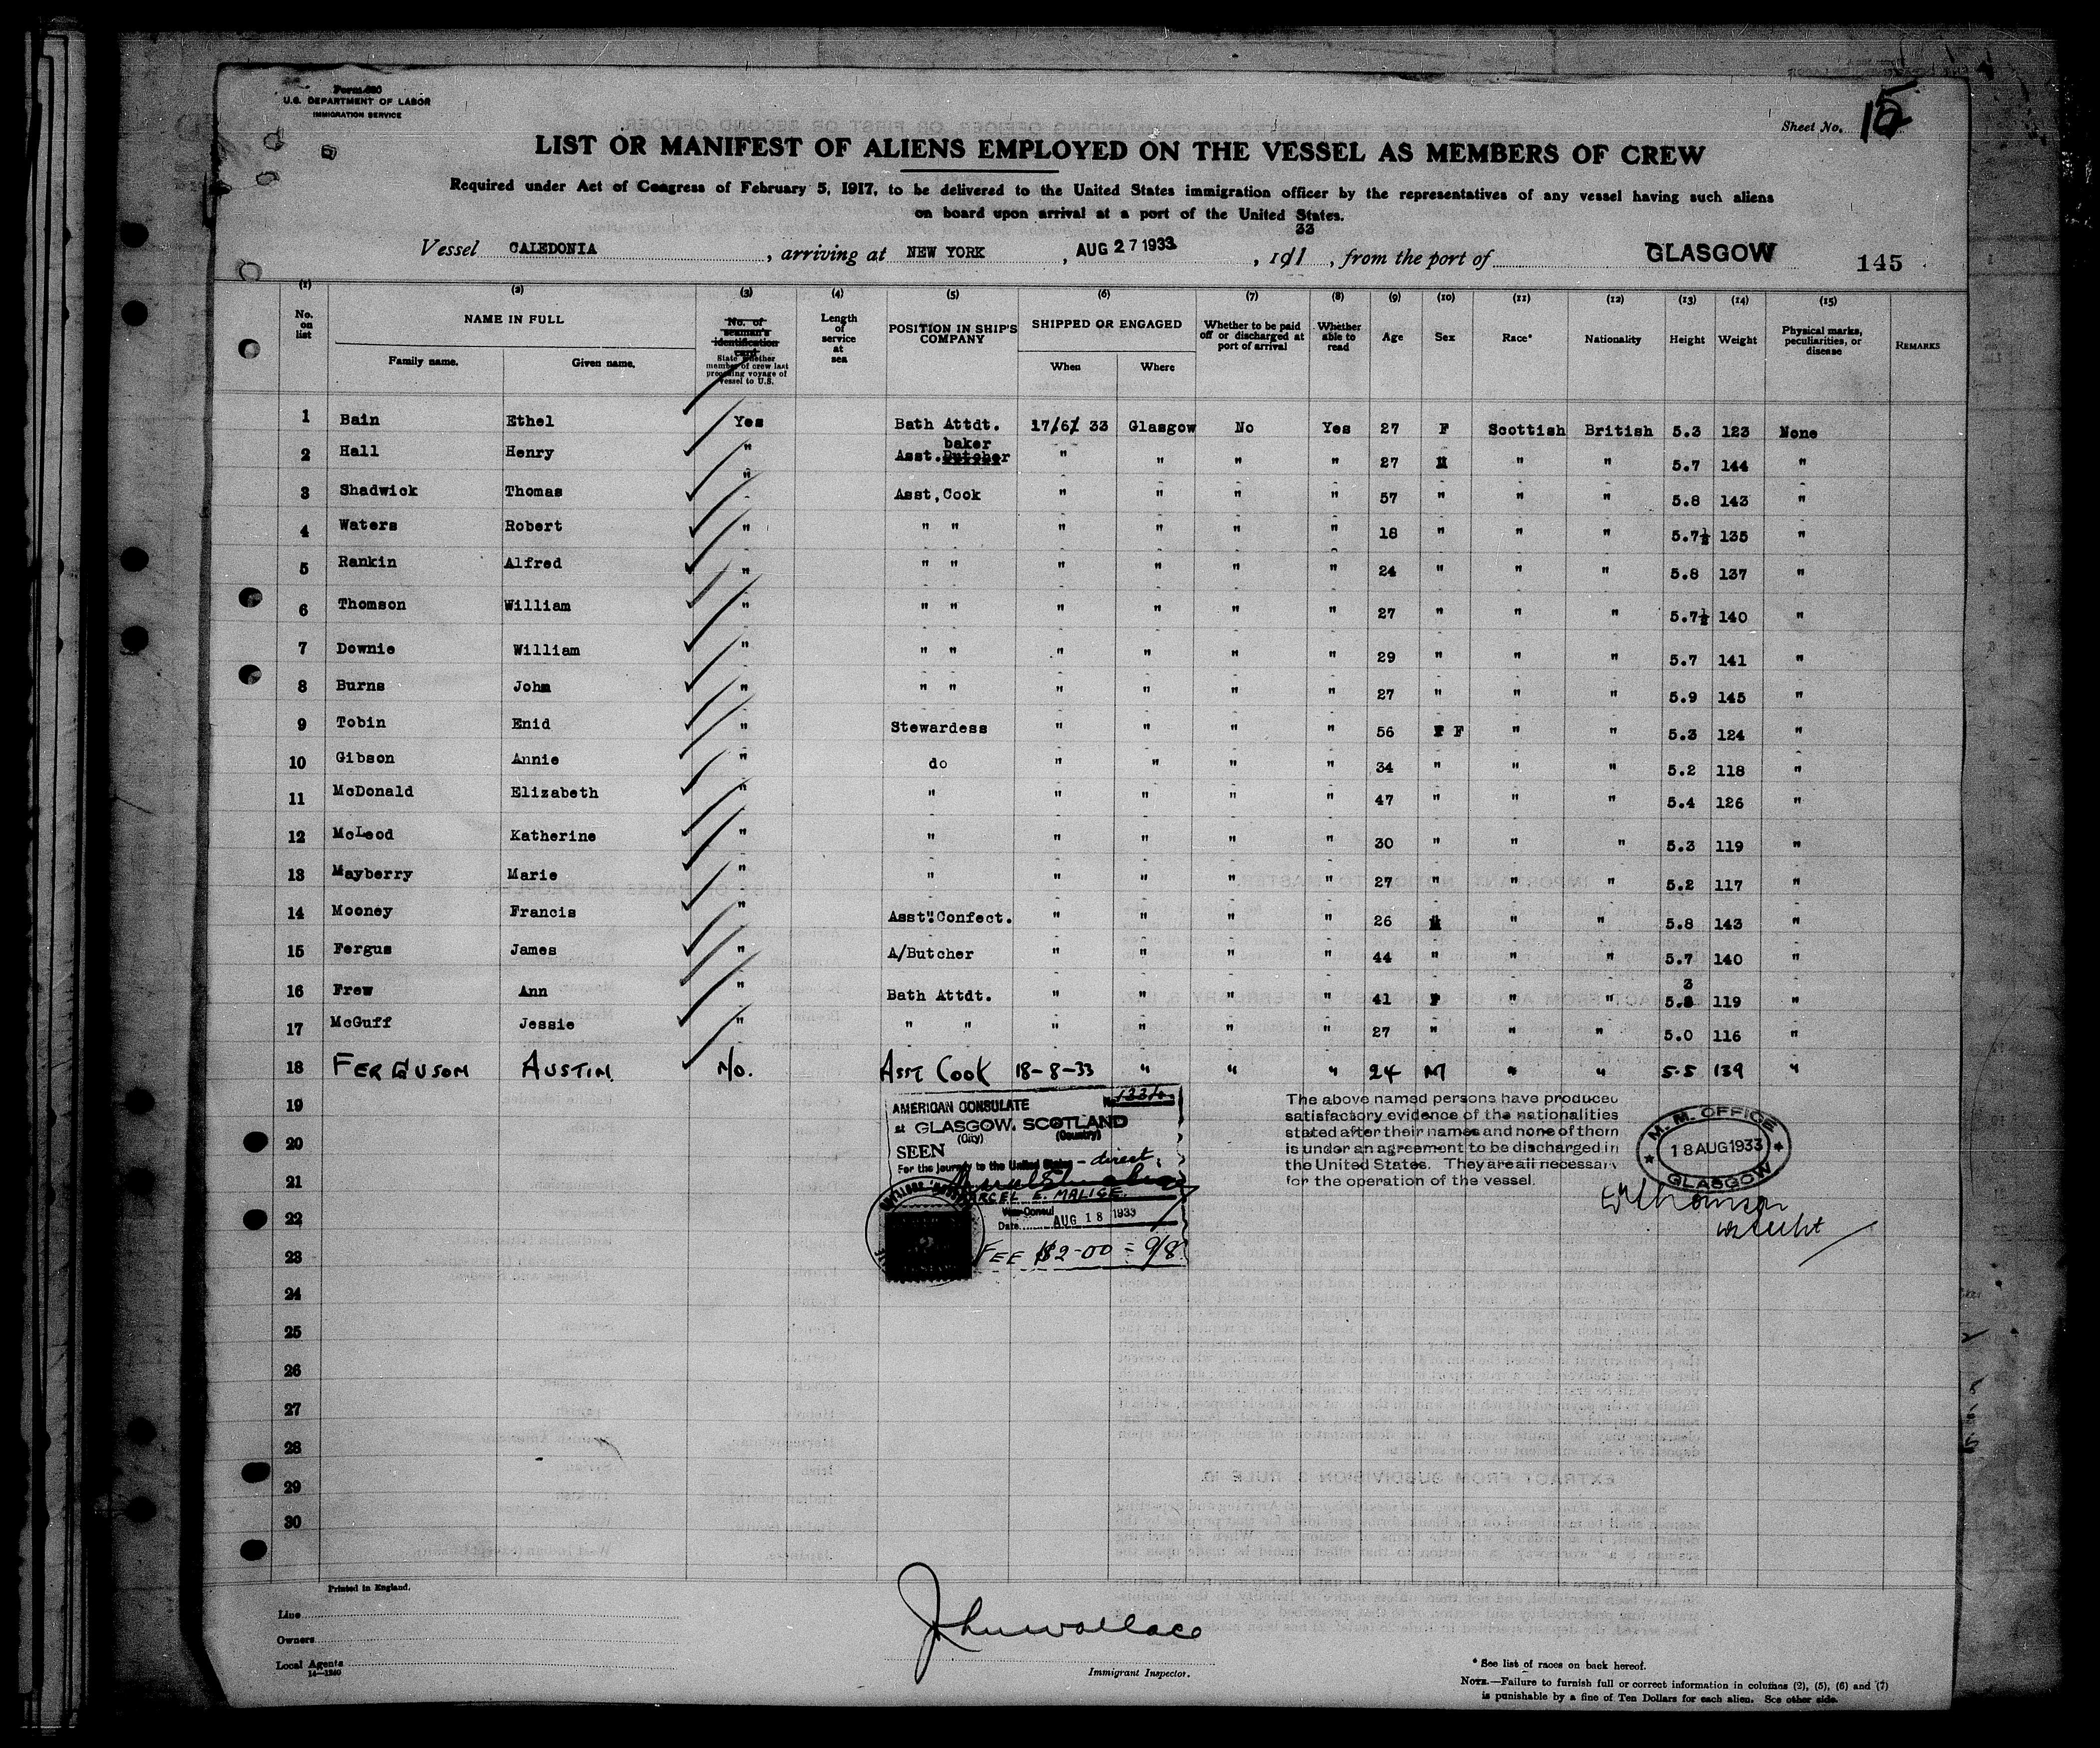 Form 680
U.S. DEPARTMENT OF LABOR
IMMIGRATION SERVICE
Sheet No. 15
LIST OR MANIFEST OF ALIENS EMPLOYED ON THE VESSEL AS MEMBERS OF CREW
Required under Act of Congress of February 5, 1917, to be delivered to the United States immigration officer by the representatives of any vessel having such aliens
on board upon arrival at a port of the United States.
33
Vessel CALEDONIA, arriving at NEW YORK, AUG 27 1933, 191, from the port of GLASGOW 145
(1) (2) (3) (4) (5) (6) (7) (8) (9) (10) (11) (12) (13) (14) (15)
No. on list
NAME IN FULL
Family name. Given name.
No. of seaman's identification card
State whether member of crew last preceding voyage of vessel to U.S.
Length of service at sea
POSITION IN SHIP'S COMPANY
SHIPPED OR ENGAGED
When Where
Whether to be paid off or discharged at port of arrival
Whether able to read
Age
Sex
Race*
Nationality
Height
Weight
Physical marks, peculiarities, or disease
REMARKS
1 Bain Ethel Yes Bath Attdt. 17/6/ 33 Glasgow No Yes 27 F Scottish British 5.3 123 None
baker
2 Hall Henry " Asst. Butcher " " " " 27 M " " 5.7 144 "
3 Shadwick Thomas " Asst, Cook " " " " 57 " " " 5.8 143 "
4 Waters Robert " " " " " " " 18 " " " 5.7½ 135 "
5 Rankin Alfred " " " " " " " 24 " " " 5.8 137 "
6 Thomson William " " " " " " " 27 " " " 5.7½ 140 "
7 Downie William " " " " " " " 29 " " " 5.7 141 "
8 Burns John " " " " " " " 27 " " " 5.9 145 "
9 Tobin Enid " Stewardess " " " " 56 F F " " 5.3 124 "
10 Gibson Annie " do " " " " 34 " " " 5.2 118 "
11 McDonald Elizabeth " " " " " " 47 " " " 5.4 126 "
12 McLeod Katherine " " " " " " 30 " " " 5.3 119 "
13 Mayberry Marie " " " " " " 27 " " " 5.2 117 "
14 Mooney Francis " Asst". Confect. " " " " 26 M " " 5.8 143 "
15 Fergus James " A/Butcher " " " " 44 " " " 5.7 140 "
3
16 Frew Ann " Bath Attdt. " " " " 41 F " " 5.8 119 "
17 McGuff Jessie " " " " " " " 27 " " " 5.0 116 "
18 FERGUSON AUSTIN No. Asst Cook 18-8-33 " " " 24 M " " 5.5 139 "
19
20
21
22
23
24
25
26
27
28
29
30
AMERICAN CONSULATE
at GLASGOW, SCOTLAND
(City) (Country)
SEEN
For the journey to the United States - direct.
MARCEL E. MALIGE.
Vice-Consul
Date AUG 18 1933
FEE $2-00 = 9/8
The above named persons have produced
satisfactory evidence of the nationalities
stated after their names and none of them
is under an agreement to be discharged in
the United States. They are all necessary
for the operation of the vessel.
M. M. OFFICE
18 AUG 1933
GLASGOW
Printed in England.
Line
Owners
Local Agents
14—1240
John Wallace
Immigrant Inspector.
* See list of races on back hereof.
NOTE.—Failure to furnish full or correct information in columns (2), (5), (6) and (7)
is punishable by a fine of Ten Dollars for each alien. See other side.